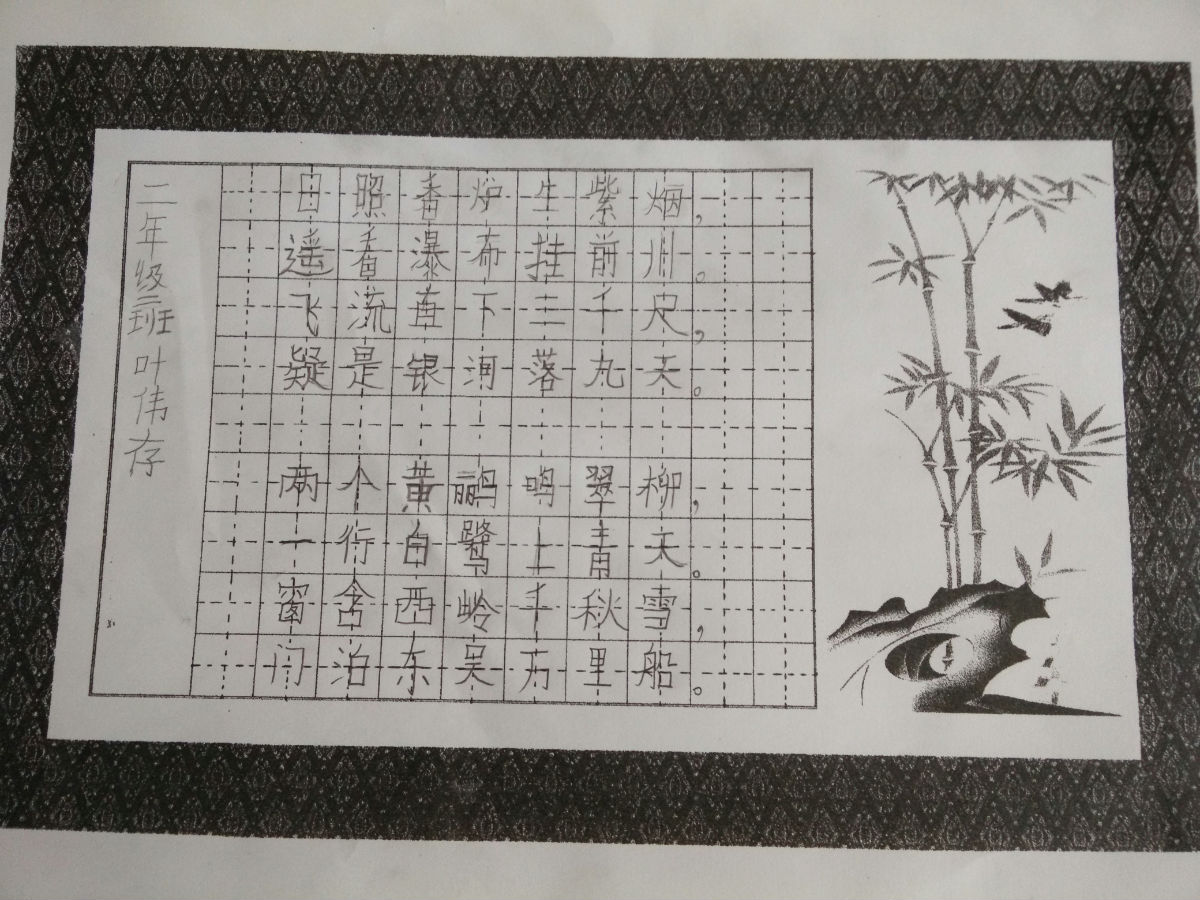 二年级二班叶伟存
日照香炉生紫烟,
遥看瀑布挂前川。
飞流直下三千尺,
疑是银河落九天。
两个黄鹂鸣翠柳,
一行白鹭上青天。
窗含西岭千秋雪,
门泊东吴万里船。